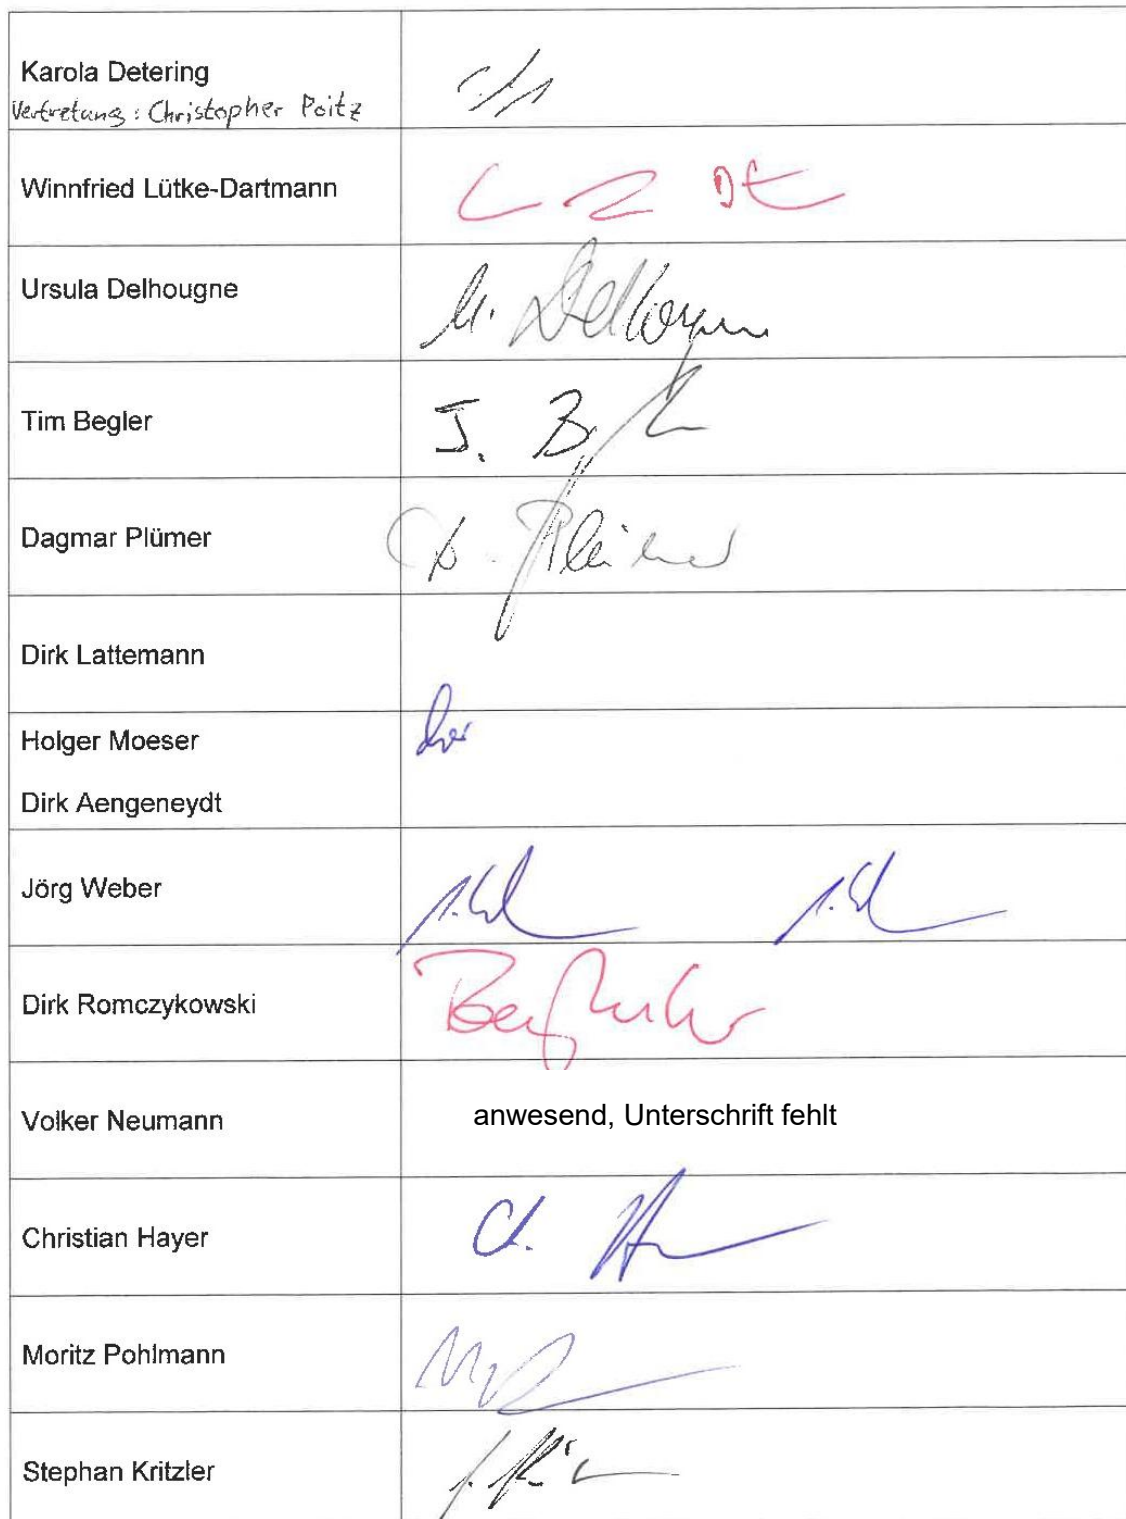 Karola Detering
Vertretung: Christopher Poitz
Winnfried Lütke-Dartmann
Ursula Delhougne
U. Delhougne
Tim Begler
Dagmar Plümer
D. Plümer
Dirk Lattemann
Holger Moeser
Dirk Aengeneydt
Jörg Weber
Dirk Romczykowski
Volker Neumann anwesend, Unterschrift fehlt
Christian Hayer
Moritz Pohlmann
Stephan Kritzler